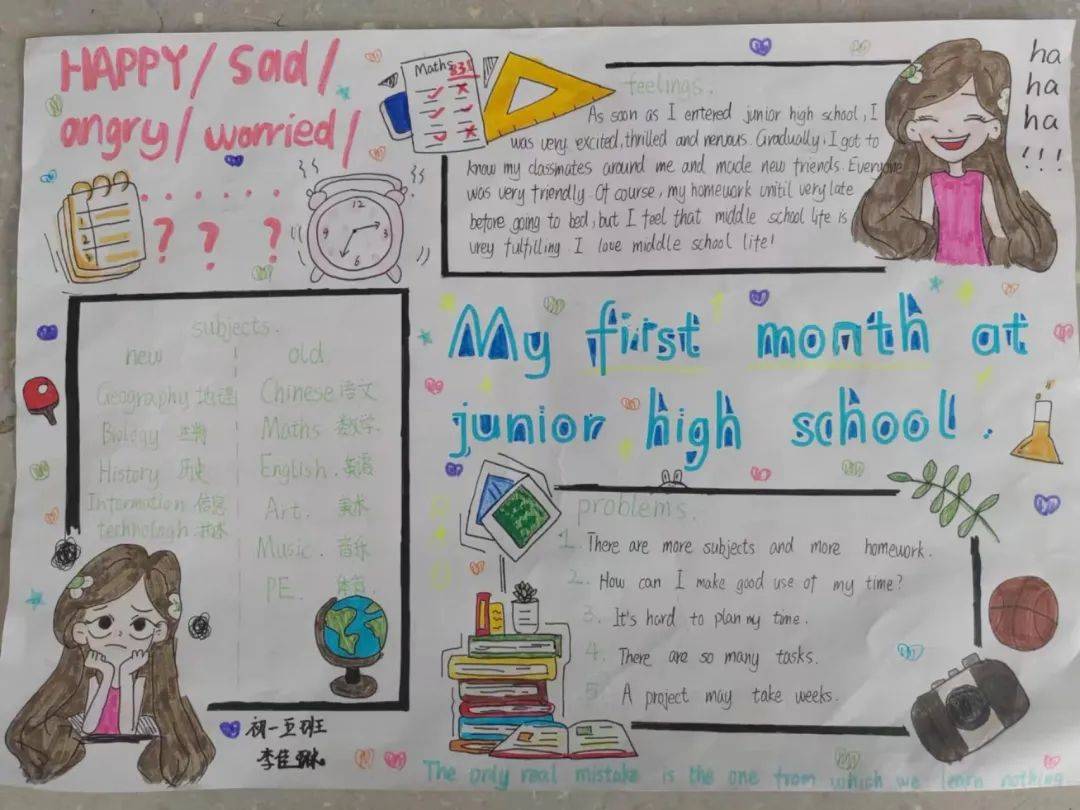 HAPPY/ sad/
angry/ worried/
......
? ? ?
1
2
12
3
6
9
Maths 83!
feelings.
As soon as I entered junior high school, I
was very excited, thrilled and nervous. Gradually, I got to
know my classmates around me and made new friends. Everyone
was very friendly. Of course, my homework unitil very late
before going to bed, but I feel that middle school life is
urey fulfilling. I love middle school life!
ha
ha
ha
!!!
My first month at
junior high school.
subjects.
new old
Geography 地理 Chinese 语文
Biology 生物 Maths 数学.
History 历史 English. 英语
Information 信息 Art. 美术
technologh. 技术 Music. 音乐
PE. 体育.
初一五班
李佳琳
problems.
1. There are more subjects and more homework.
2. How can I make good use of my time?
3. It's hard to plan my time.
4. There are so many tasks.
5. A project may take weeks.
The only real mistake is the one from which we learn nothing.